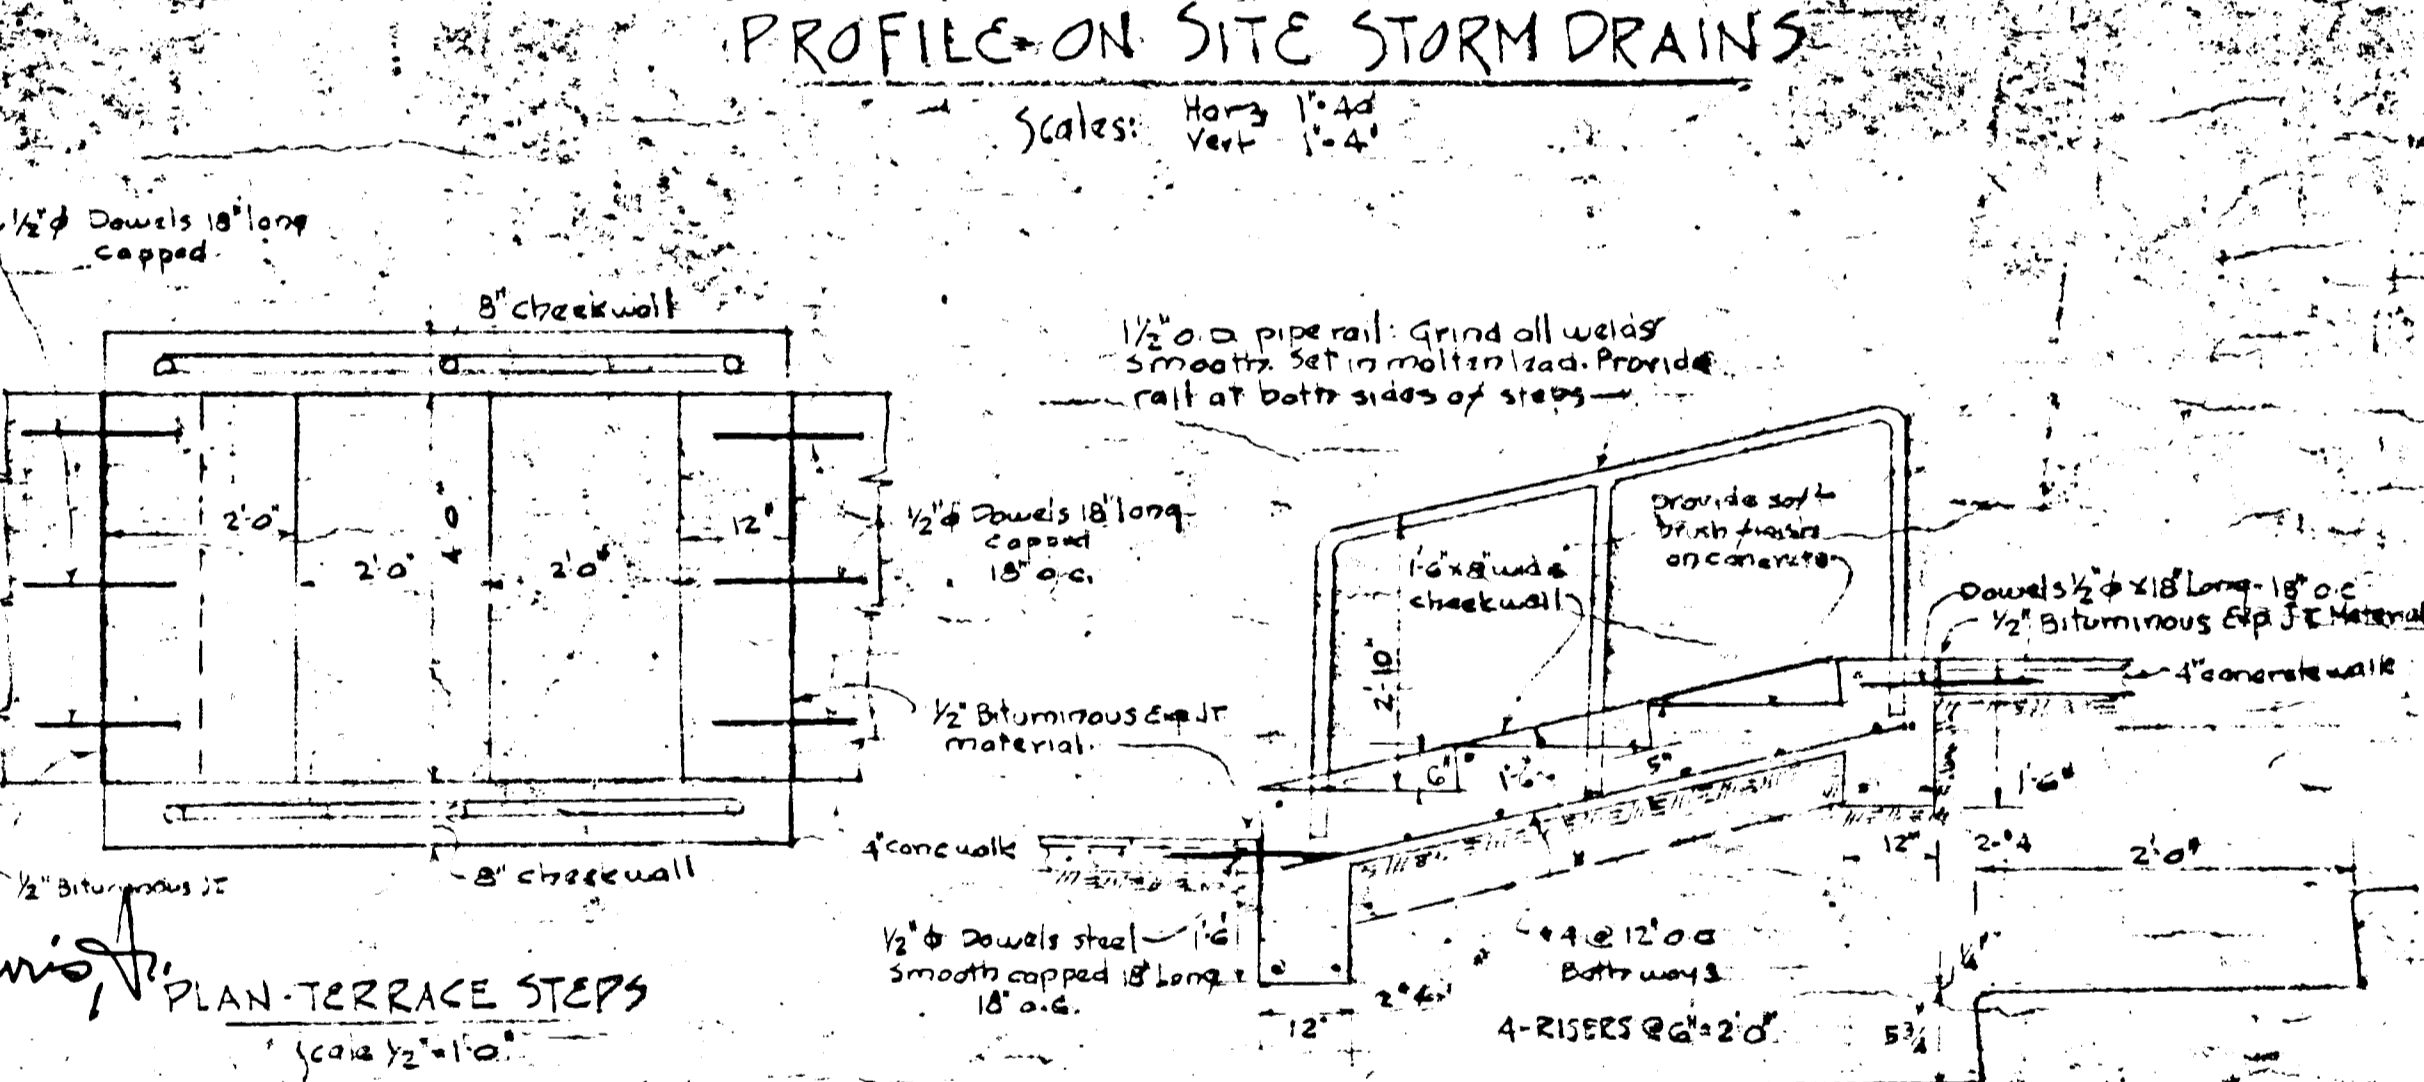 PROFILE-ON SITE STORM DRAINS
Scales: Horz 1"=40'
Vert 1"=4'
1/2"ϕ Dowels 18" long
capped
8" cheekwall
2'-0"
2'-0"
4'-0"
2'-0"
12"
1/2"ϕ Dowels 18" long
capped
18" o.c.
1/2" Bituminous Exp JT
material
8" cheekwall
1/2" Bituminous JT
PLAN-TERRACE STEPS
Scale 1/2"=1'-0"
1 1/2" O.D pipe rail: Grind all welds
smooth. Set in molten lead. Provide
rail at both sides of steps
provide soft
brush finish
on concrete
1'-6"x8" wide
cheekwall
2'-10"
Dowels 1/2"ϕ x18" Long-18" o.c
1/2" Bituminous Exp JT Material
4" concrete walk
6"
1'-6"
5"
1'-6"
4" conc walk
12"
2-#4
2'-0"
1/2"ϕ Dowels steel
smooth capped 18" Long
18" o.c.
1'-6"
12"
#4 @ 12" o.c
Both ways
4-RISERS @ 6"=2'-0"
5 3/4"